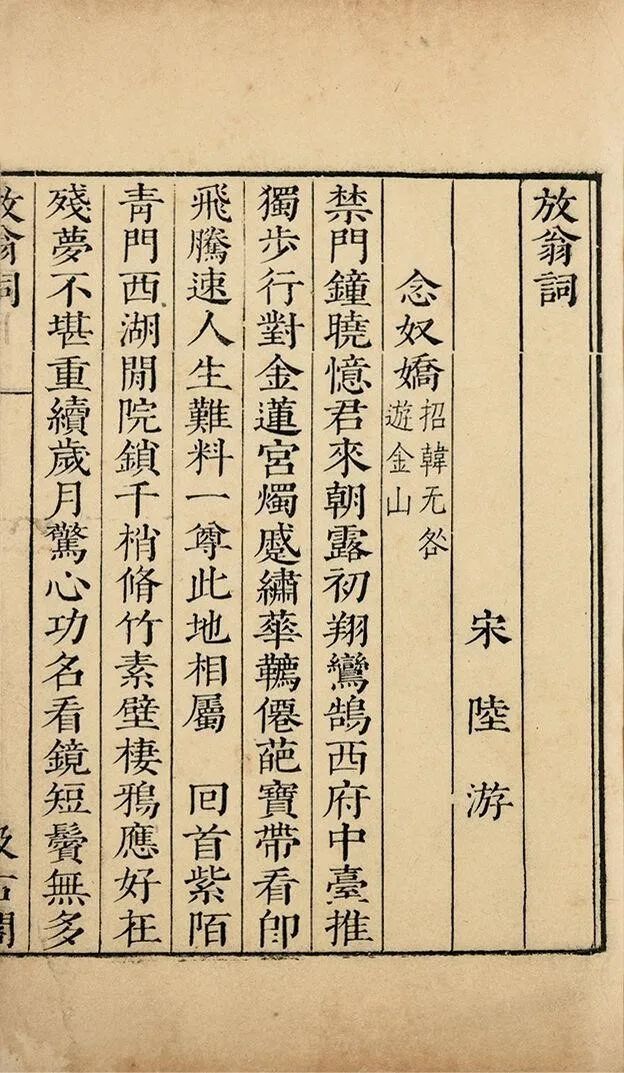 放翁詞
宋陸游
念奴嬌
招韓无咎
遊金山
禁門鐘曉憶君來朝露初翔鸞鵠西府中臺推
獨步行對金蓮宮燭蹙繡華韉僊葩寶帶看卽
飛騰速人生難料一尊此地相屬　回首紫陌
青門西湖閒院鎖千梢脩竹素壁棲鴉應好在
殘夢不堪重續歲月驚心功名看鏡短鬢無多
放翁詞
汲古閣